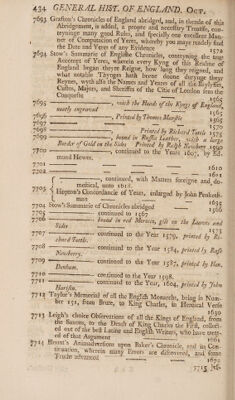 434 GENERAL HIST. OF ENGLAND. Oct.
7693 Grafton's Chronicles of England abridged, and, in thende of this
Abridgement, is added, a proper and necessary Treatise, con-
teyninge many good Rules, and specially one excellent Man-
ner of Computacion of Yeres, whereby you maye readely find
the Date and Yeres of any Evidence 1572
Stow's Summarie of Englishe Chronicles, conteyning the true
Accompt of Yeres, wherein every Kyng of this Realme of
England began theyr Reigne, how long they reigned, and
what notable Thynges hath beene doone durynge theyr
Reynes, wyth also the Names and Yeares of all the Baylyffes,
Custos, Majors, and Sheriffes of the Citie of London sins the
Conqueste
7695 , with the Heads of the Kings of England,
neatly engraved
7696 Printed by Thomas Marshe 1565
7697 1570
7698 Printed by Richard Tottle 1575
7699 , bound in Russia Leather, with a large
Border of Gold on the Sides Printed by Ralph Newbery 1590
7700 , continued to the Yeare 1607, by Ed-
mund Howes.
7701
7702 1610
1611
, continued, with Matters forreigne and do-
mesticall, unto 1618.
Hopton's Concordancie of Years, enlarged by John Penketh-
man 1635
7704 Stow's Summarie of Chronicles abridged 1566
7705 continued to 1567
7706 bound in red Morocco, gilt on the Leaves and
Sides 1573
7707 continued to the Year 1579, printed by Ri-
chard Tottle.
7708 continued to the Year 1584, printed by Rafe
Newberry.
7709 continued to the Year 1587, printed by Hen.
Denham.
7710 continued to the Year 1598.
7711 continued to the Year, 1604, printed by John
Harison.
7712 Taylor's Memorial of all the English Monarchs, being in Num-
ber 151, from Brute, to King Charles, in Heroical Verse
1630
7713 Leigh's choice Observations of all the Kings of England, from
the Saxons, to the Death of King Charles the First, collect-
ed out of the best Latine and English Writers, who have treat-
ed of that Argument 1661
7714 Blount's Animadversions upon Baker's Chronicle, and its Con-
tinuation, wherein many Errors are discovered, and some
Truths advanced 1672
7715